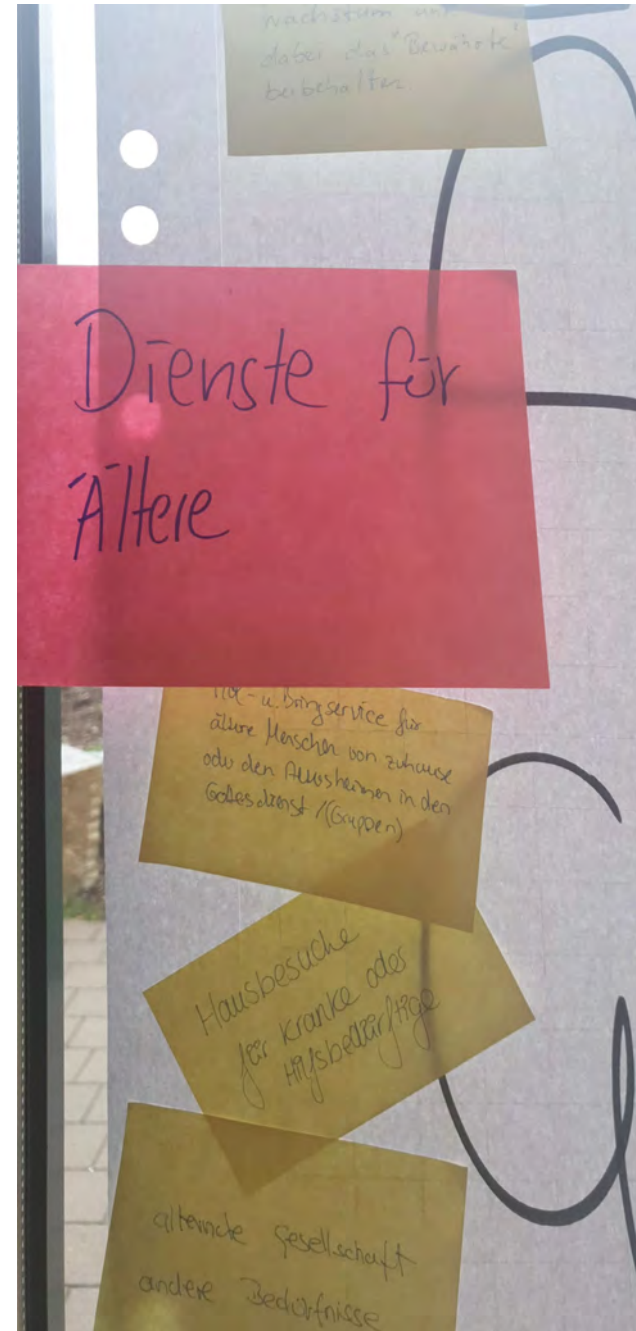 dabei das "Bewährte"
beibehalten
Dienste für
Ältere
Hol- u. Bringservice für
ältere Menschen von zuhause
oder den Altersheimen in den
Gottesdienst /(Gruppen)
Hausbesuche
für Kranke oder
Hilfsbedürftige
alternde Gesellschaft
andere Bedürfnisse